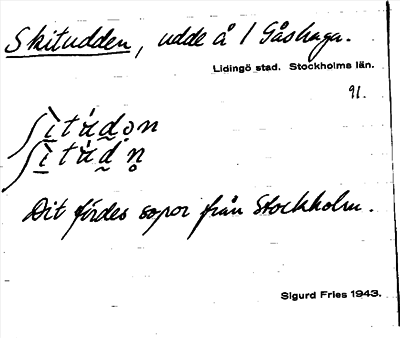 Skitudden, udde å 1 Gåshaga.
Lidingö stad. Stockholms län.
91.
ʃìtúd̰ən
ʃìtúd̰n̥
Dit fördes sopor från Stockholm.
Sigurd Fries 1943.